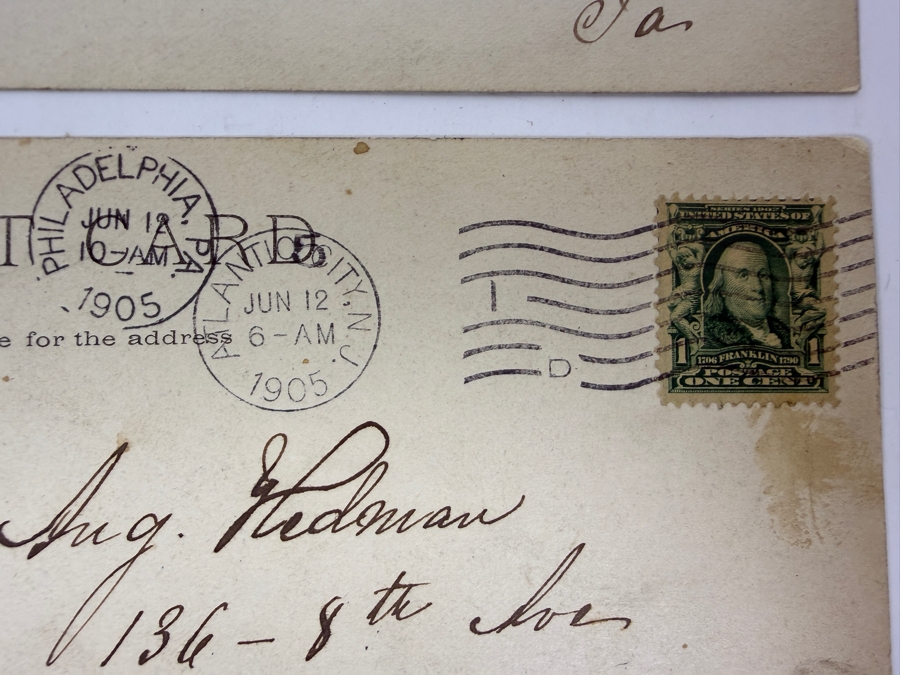 Pa
PHILADELPHIA, PA.
JUN 12
10-AM
1905
T CARD
e for the address
ATLANTIC CITY, N.J.
JUN 12
6-AM
1905
I
D
SERIES 1902
UNITED STATES OF
AMERICA
1 1706 FRANKLIN 1790 1
POSTAGE
ONE CENT
Aug. Hedman
136 - 8th Ave